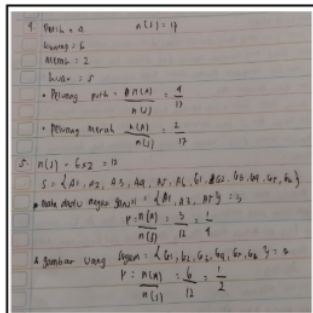 4. Putih = 4 n(s) = 17
kuning = 6
Merah = 2
• Peluang putih = n(A) / n(s) = 4 / 17
• Peluang merah n(A) / n(s) = 2 / 17
5. n(s) = 6x2 = 12
S = { A1, A2, A3, A4, A5, A6, G1, G2, G3, G4, G5, G6 }
• mata dadu = { A1, A3, A5 } = 3
P = n(A) / n(s) = 3 / 12 = 1 / 4
gambar uang = { G1, G2, G3, G4, G5, G6 } =
P = n(A) / n(s) = 6 / 12 = 1 / 2